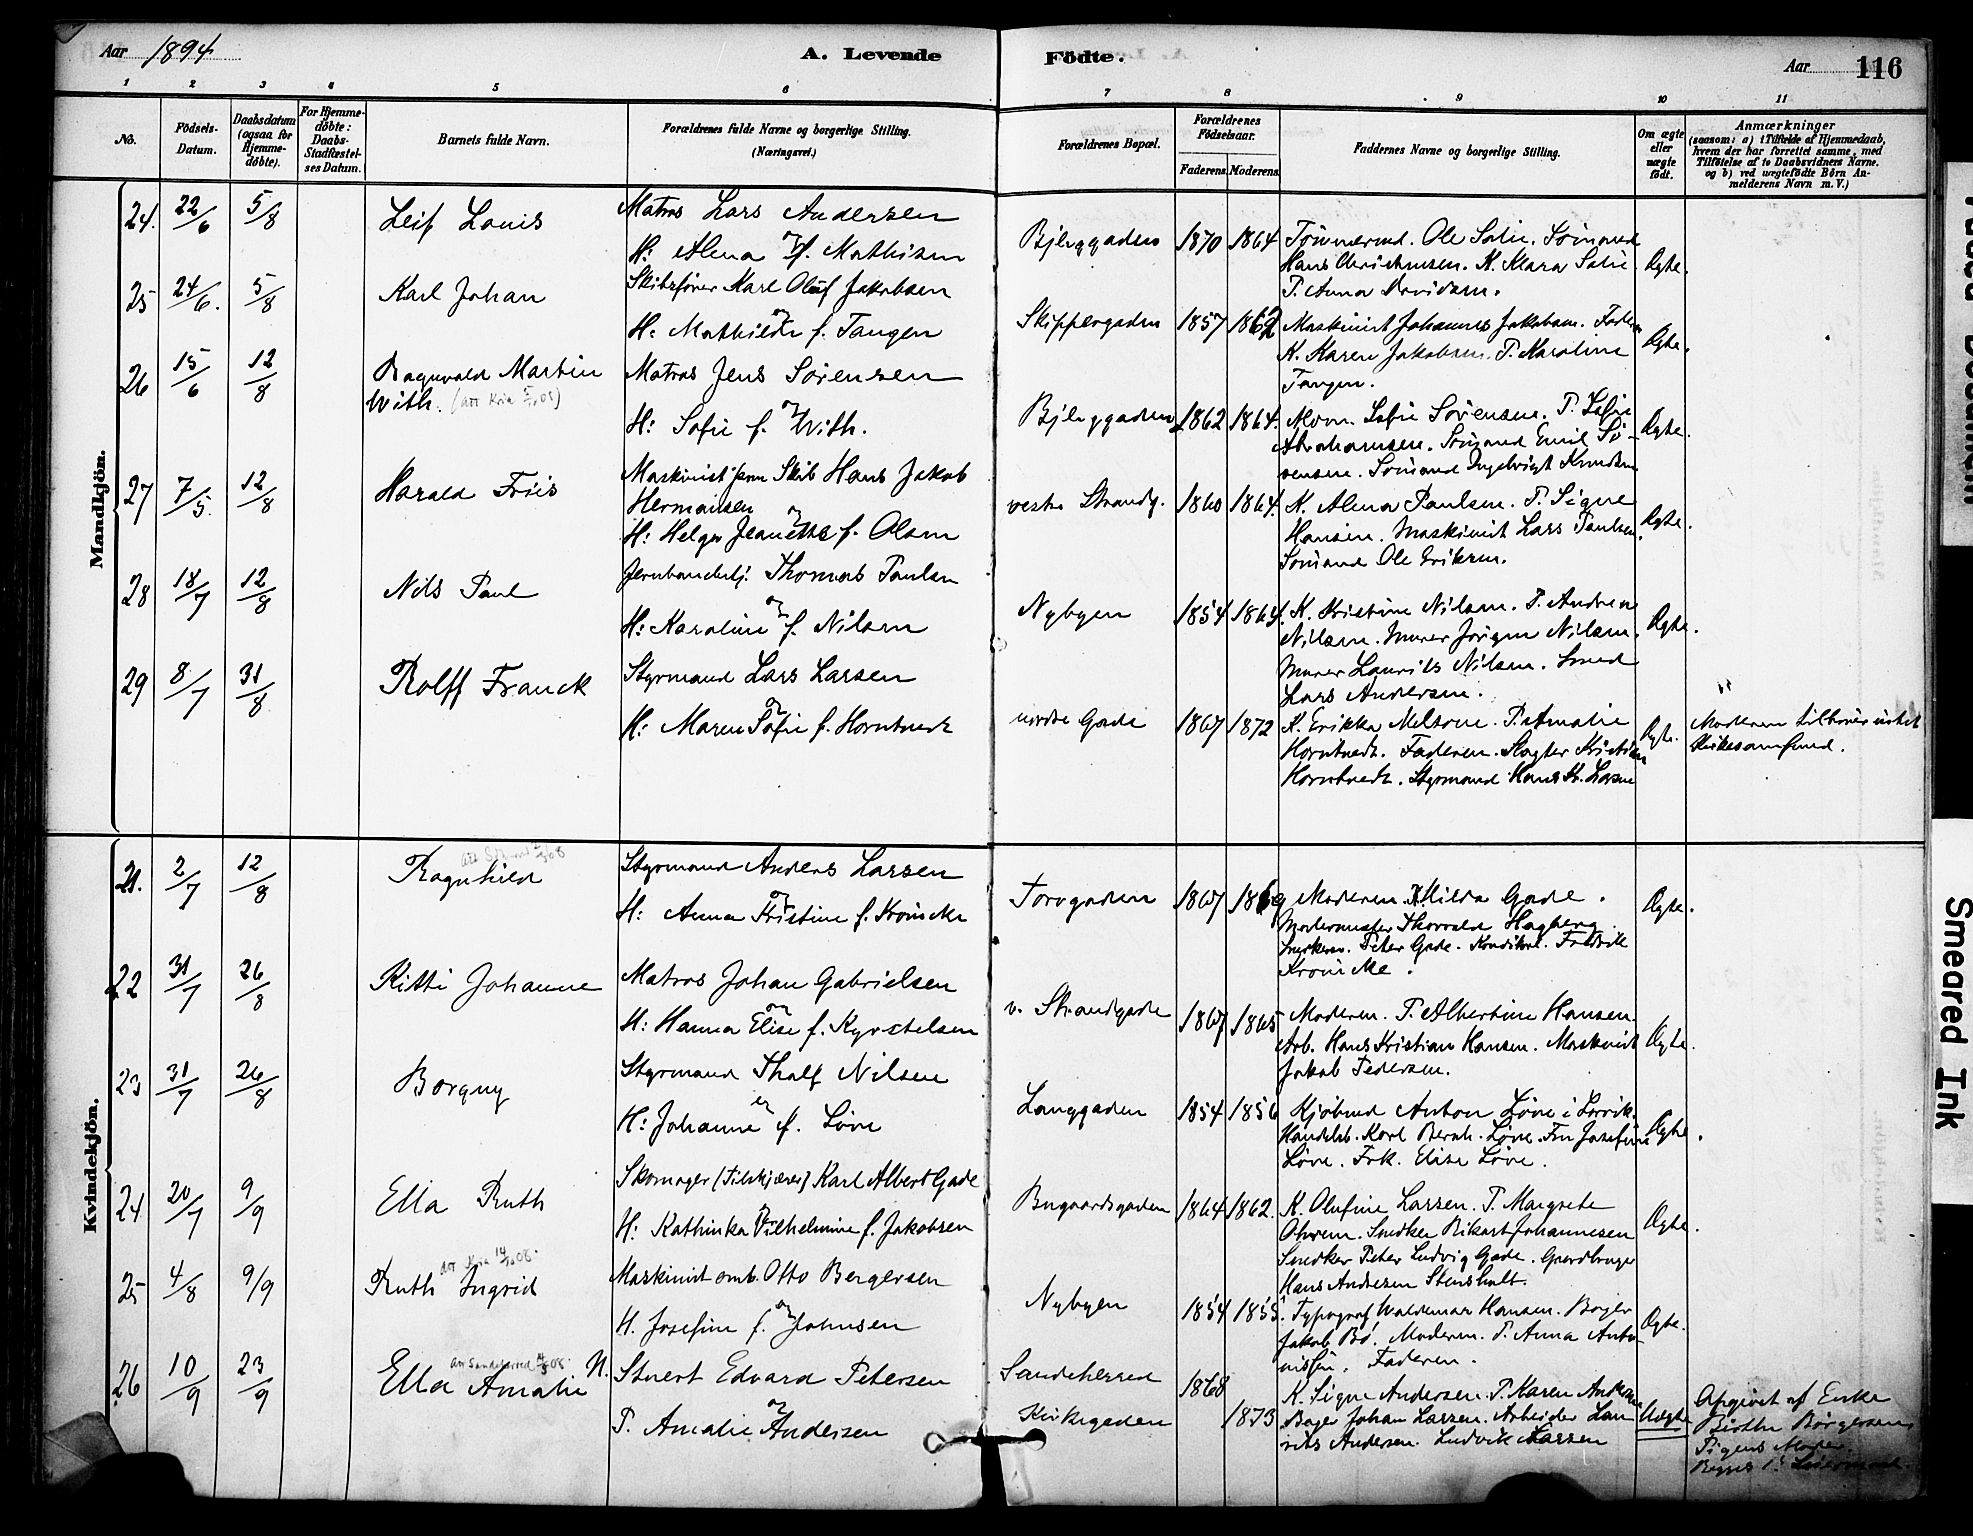 Aar 1894
A. Levende Födte.
Aar 116
1 2 3 4 5 6 7 8 9 10 11
No.
Födsels-Datum.
Daabsdatum (ogsaa for Hjemme-döbte).
For Hjemme-döbte: Daabs-Stadfæstel-ses Datum.
Barnets fulde Navn.
Forældrenes fulde Navne og borgerlige Stilling. (Næringsvei.)
Forældrenes Bopæl.
Forældrenes Födselsaar.
Faderens Moderens
Faddernes Navne og borgerlige Stilling.
Om ægte eller uægte födt.
Anmærkninger
(saasom: a) i Tilfælde af Hjemmedaab, hvem der har forrettet samme, med Tilföielse af to Daabsvidners Navne, og b) ved uægtefödte Börn An-melderens Navn m. V.)
Mandkjön.
24. 22/6 5/8 Leif Louis
Matros Lars Andersen
H: Alena f. Mathisen
Bjeleggaden 1870 1864
Ole Sølie. Sömand
Hans Christensen. K. Klara Sølie
P. Anna Davidsen.
Ægte.
25 24/6. 5/8 Karl Johan
Skibsfører Karl Oluf Jakobsen
og
H: Mathilde f. Tangen
Skippergaden 1857 1862
Maskinist Johannes Jakobsen. Faderen
K. Karen Jakobsen. P. Karoline
Tangen.
Ægte.
26 15/6 12/8 Ragnvald Martin
With.
Matros Jens Sörensen
og
H: Sofie f. With.
1862 1864.
Sofie Sörensen. P. Sofie
Abrahamsen. Sömand Emil Sö-
rensen. Sömand Ingebrigt Knudsen
Ægte.
27 7/5. 12/8 Harald Friis
Maskinist paa Skib Hans Jakob
Hermansen
og
H: Helga Jeanette f. Olsen
vestre Strandg. 1860 1864.
K. Alena Paulsen. P. Signe
Hansen. Maskinist Lars Paulsen.
Sömand Ole Eriksen.
Ægte.
28 18/7 12/8 Nils Paul
Jernbanebetj. Thomas Paulsen
og
H: Karoline f. Nilsen
Nybyen 1854 1864.
K. Kristine Nilsen. P. Andrine
Nilsen. Murer Jörgen Nilsen.
Murer Laurits Nilsen. Smed
Lars Andersen.
Ægte.
29 8/7 31/8 Rolff Franck
Styrmand Lars Larsen
og
H: Maren Sofie f. Horntvedt
nordre Gade 1867 1872
K. Erikka Melsone. P. Amalie
Horntvedt. Faderen. Slagter Kristian
Horntvedt. Styrmand Hans Kr. Larsen
Ægte.
Moderen
Kirkesamfund.
Kvindekjön.
21. 2/7 12/8 Ragnhild
Styrmand Anders Larsen
og
H: Anna Kristine f. Krönicke
Torvgaden 1867 1869
Moderen. Milda Gade.
Thorvald Hagberg
Peter Gade. Konditor Fredrik
Krönicke.
Ægte.
22 31/7 26/8 Kitti Johanne
Matros Johan Gabrielsen
og
H: Hanna Elise f. Kyrstelsen
v. Strandgade 1867 1865
Moderen. P. Albertine Hansen.
Arb. Hans Kristian Hansen. Maskinist
Jakob Pedersen.
Ægte.
23 31/7 26/8 Borgny
Styrmand Thalf Nilsen
og
H: Johanne f. Löve
Langgaden 1854 1856
Kjöbmd Anton Löve i Larvik.
Handelsb. Karl Bernh. Löve. Fru Josefine
Löve. Frk. Elise Löve.
Ægte.
24 20/7 9/9 Ella Ruth
Skomager (Tilskjærer) Karl Albert Gade
og
H: Kathinka Vilhelmine f. Jakobsen
Bugaardsgaden 1864 1862.
K. Olufine Larsen. P. Margrete
Snedker Rikart Johannesen
Snedker Peter Ludvig Gade. Gaardbruger
Hans Andersen Stensholt.
Ægte.
25 4/8 9/9 Ruth Ingrid
Att Kria 14/10 08.
Maskinist omb. Otto Bergersen
og
H. Josefine f. Johnsen
Nybyen 1854 1855.
Typograf Waldemar Hansen. Bager
Jakob Bö. Moderen. P. Anna Anto-
nissen. Faderen.
Ægte.
26 10/9 23/9 Ella Amalie N.
Att Sandeherred
Stuert Edvard Petersen
og
P. Amalie Andersen
Sandeherred 1868
Kirkegaden 1873
K. Signe Andersen. P. Karen Andersen
Bager Johan Larsen. Arbeider Lau-
rits Andersen. Ludvik Larsen
Uægte
Opgivet af Enke
Börgesen
Pigens Moder.
Tuca Document
Smeared Ink